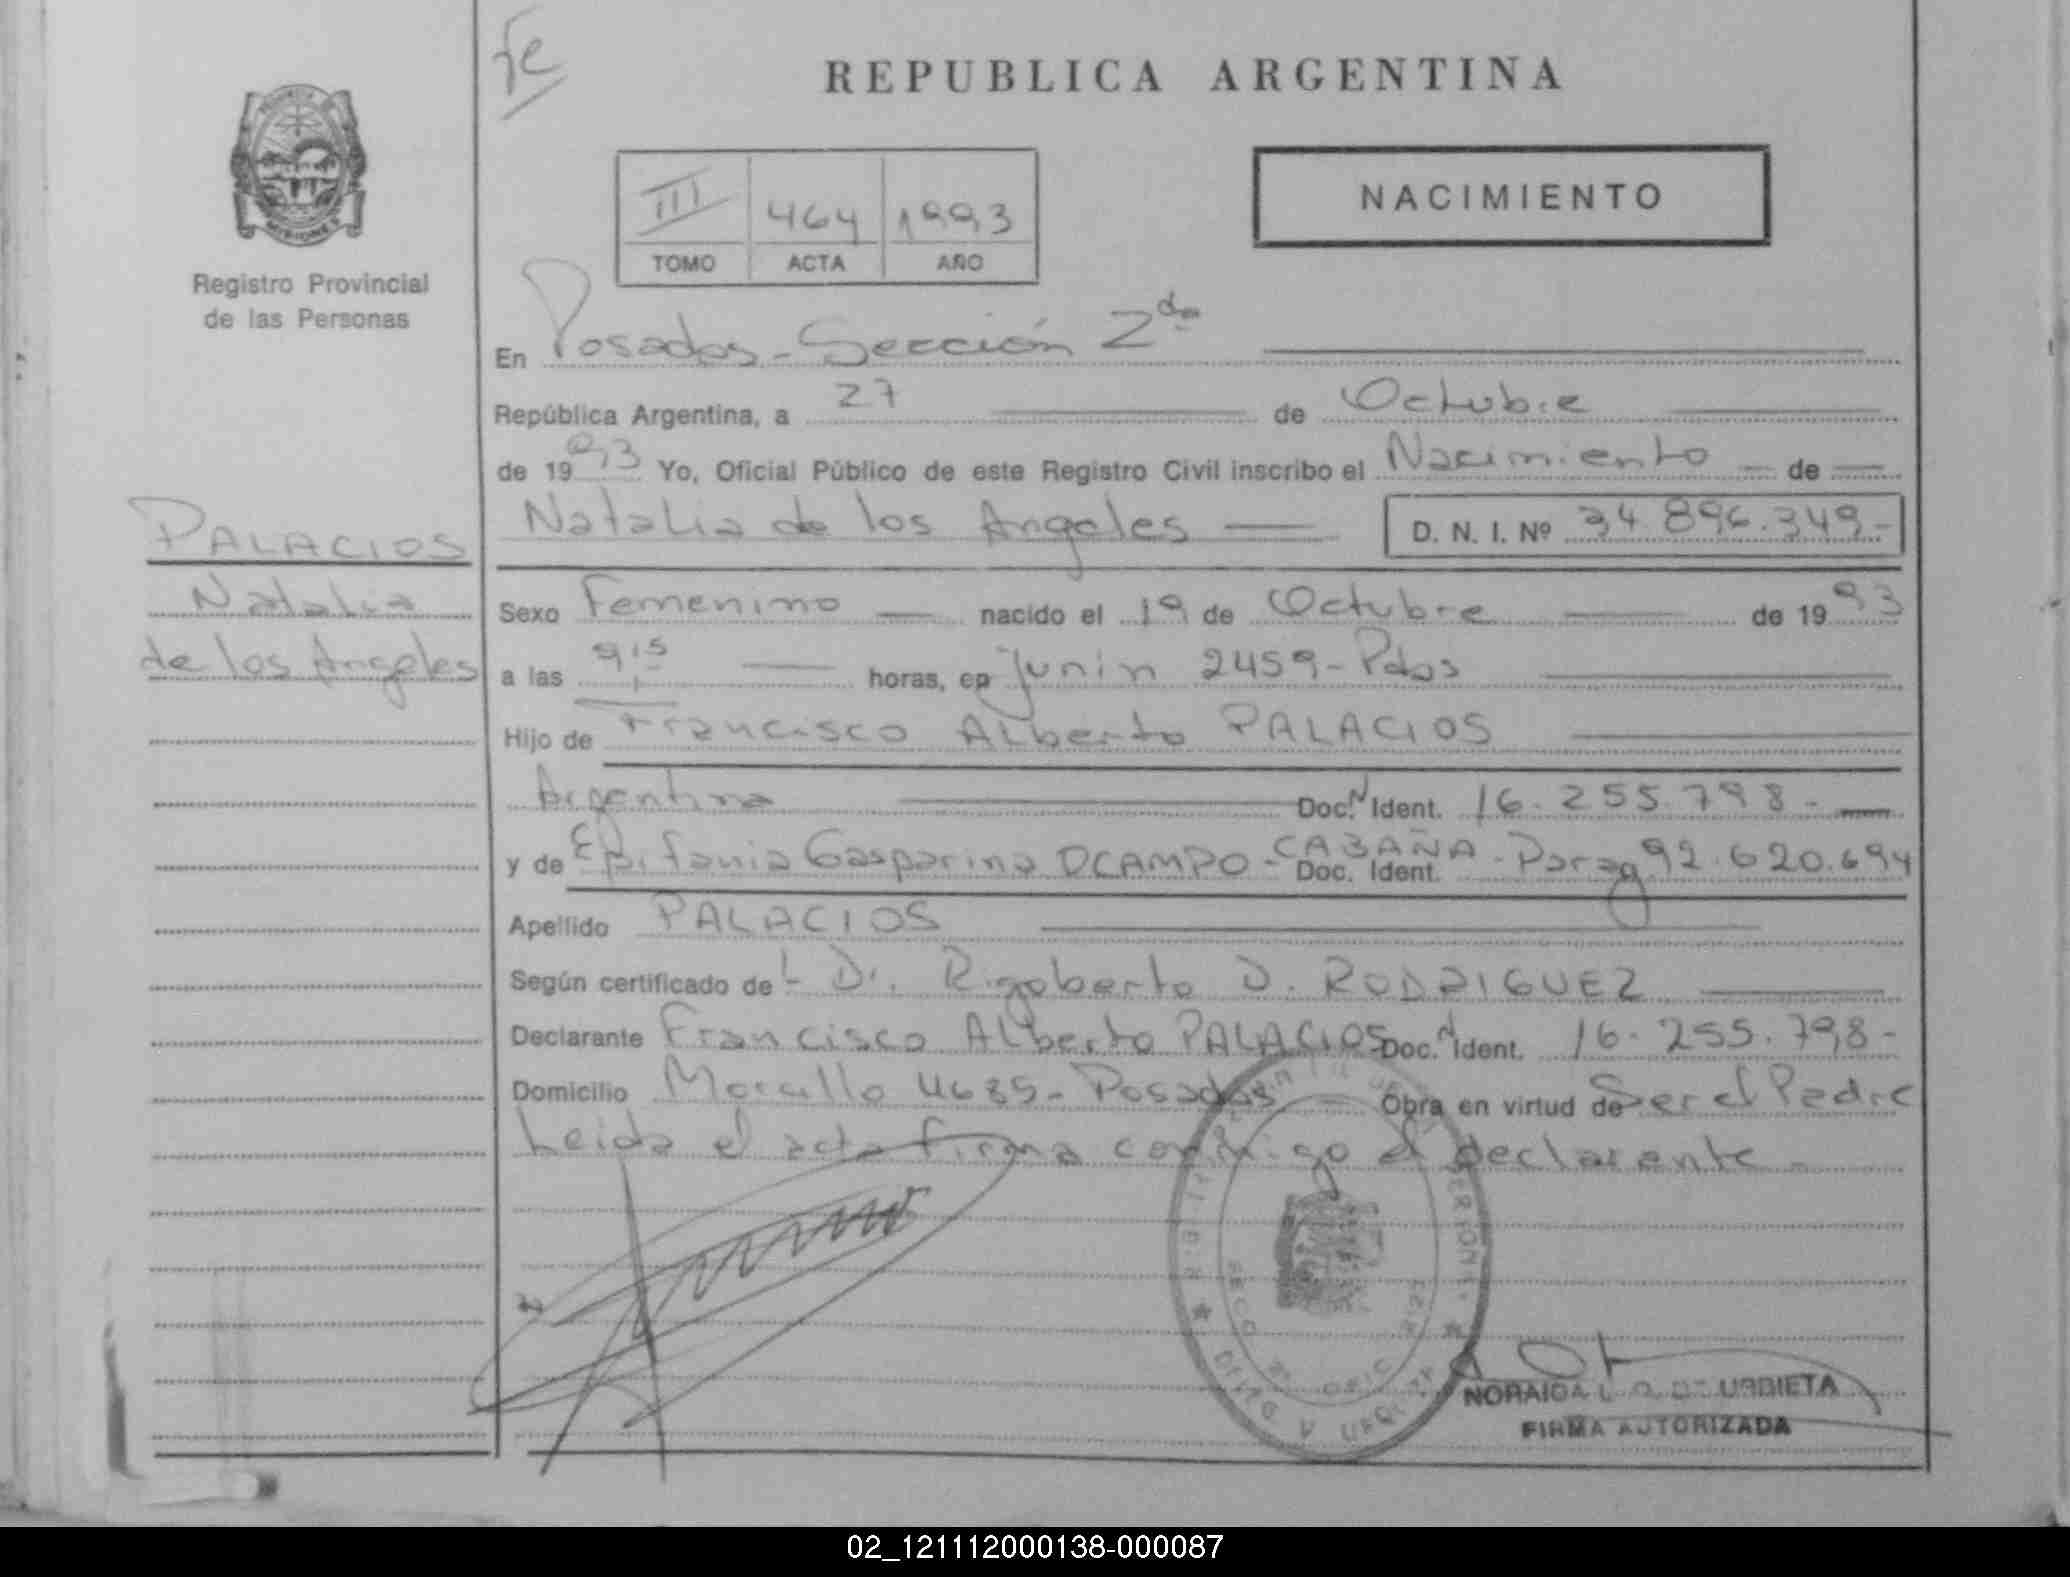 fe
REPUBLICA ARGENTINA
III 464 1993
TOMO ACTA AÑO
NACIMIENTO
MISIONES
Registro Provincial
de las Personas
PALACIOS
Natalia
de los Angeles
En Posadas - Sección 2da
República Argentina, a 27 de Octubre
de 1993 Yo, Oficial Público de este Registro Civil inscribo el Nacimiento — de —
Natalia de los Angeles — D. N. I. Nº 34.896.349-
Sexo Femenino — nacido el 19 de Octubre de 1993
a las 9,15 — horas, en Junin 2459 - Pdas
Hijo de Francisco Alberto PALACIOS
Argentina — Doc. N Ident. 16.255.798. —
y de Epifania Gasparina OCAMPO - CABAÑA - Parag Doc. Ident. 92.620.694
Apellido PALACIOS
Según certificado del Dr. Rigoberto D. RODRIGUEZ
Declarante Francisco Alberto PALACIOS Doc. N Ident. 16.255.798-
Domicilio 4685 - Posadas — Obra en virtud de Ser el Padre
Leida el acta firma conmigo el declarante -
URBIETA
FIRMA AUTORIZADA
02_121112000138-000087